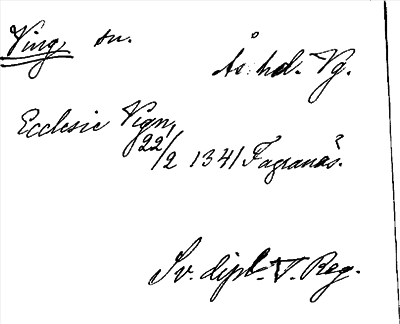 Ving, sn. Ås hd. Vg.
Ecclesie Vign,
22/2 1341 Fagranäs.
Sv. dipl. T. Reg.